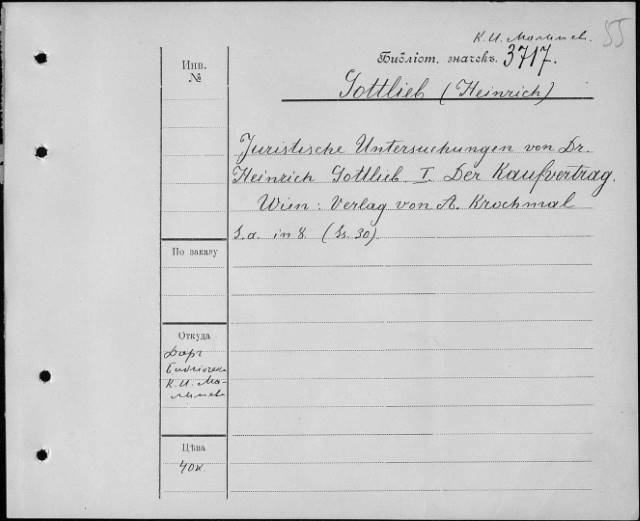 К. И. Малышев.
55
Библіот. значекъ. 3717.
Gottlieb (Heinrich)
Инв.
№
Juristische Untersuchungen von Dr.
Heinrich Gottlieb I. Der Kaufvertrag.
Wien: Verlag von A. Krochmal
S. a. in 8. (Ss. 30)
По заказу
Откуда
Даръ
библіотека
К. И. Ма-
лышев
Цѣна
40к.